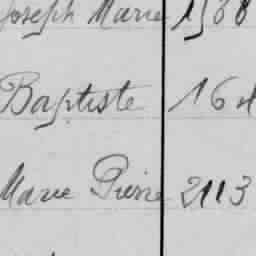 Joseph Marie 1568
Baptiste 16
Marie Pierre 2113